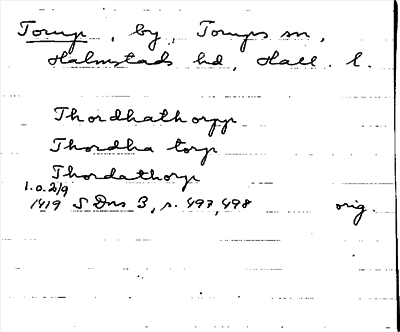 Torup, by, Torups sn,
Halmstads hd, Hall. l.
Thordhathorpp
Thordha torp
Thordathorp
1.o. 2/9
1419 S Dns 3, s. 497, 498 orig.